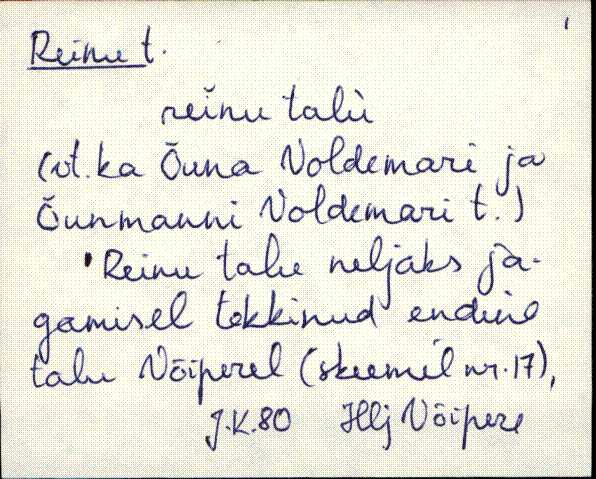 Reinu t.
reinu talù
(vt. ka Õuna Voldemari ja
Õunmanni Voldemari t.)
Reinu talu neljaks ja-
gamisel tekkinud endine
talu Võiperel (skeemil nr. 17),
J.K. 80 Hlj Võipere